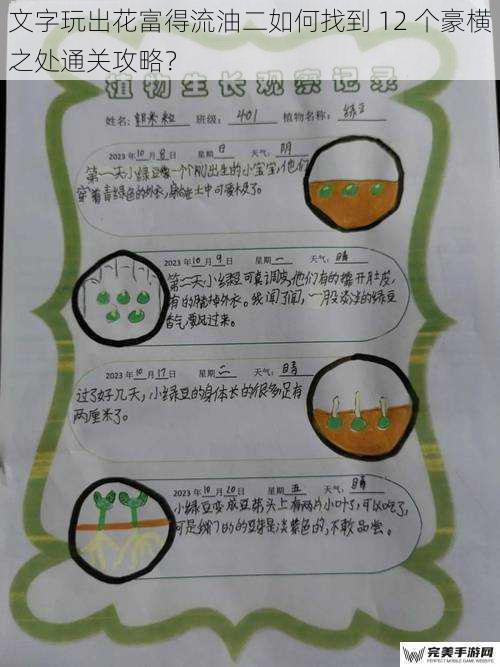 文字玩出花富得流油二如何找到 12 个豪横
之处通关攻略？
植物生长观察记录
姓名: 班级: 401 植物名称: 绿豆
2023 年 10 月 8 日 星期 日 天气: 阴
第一天小绿豆像一个个刚出生的小宝宝,他们
穿着青绿色的外衣,身在土中可爱极了。
2023 年 10 月 9 日 星期 一 天气: 晴
第二天小绿豆可真调皮,他们有的撑开肚皮,
有的脱掉外衣。我闻了闻,一股淡淡的绿豆
香气扑面过来。
2023 年 10 月 17 日 星期 二 天气: 晴
过了好几天,小绿豆的身体长的很多足有
两厘米了。
2023 年 10 月 20 日 星期 五 天气: 晴
小绿豆变成豆芽头上有两片小叶子,可以吃了,
可是我们的豆芽是淡紫色的,不敢品尝。
完美手游网